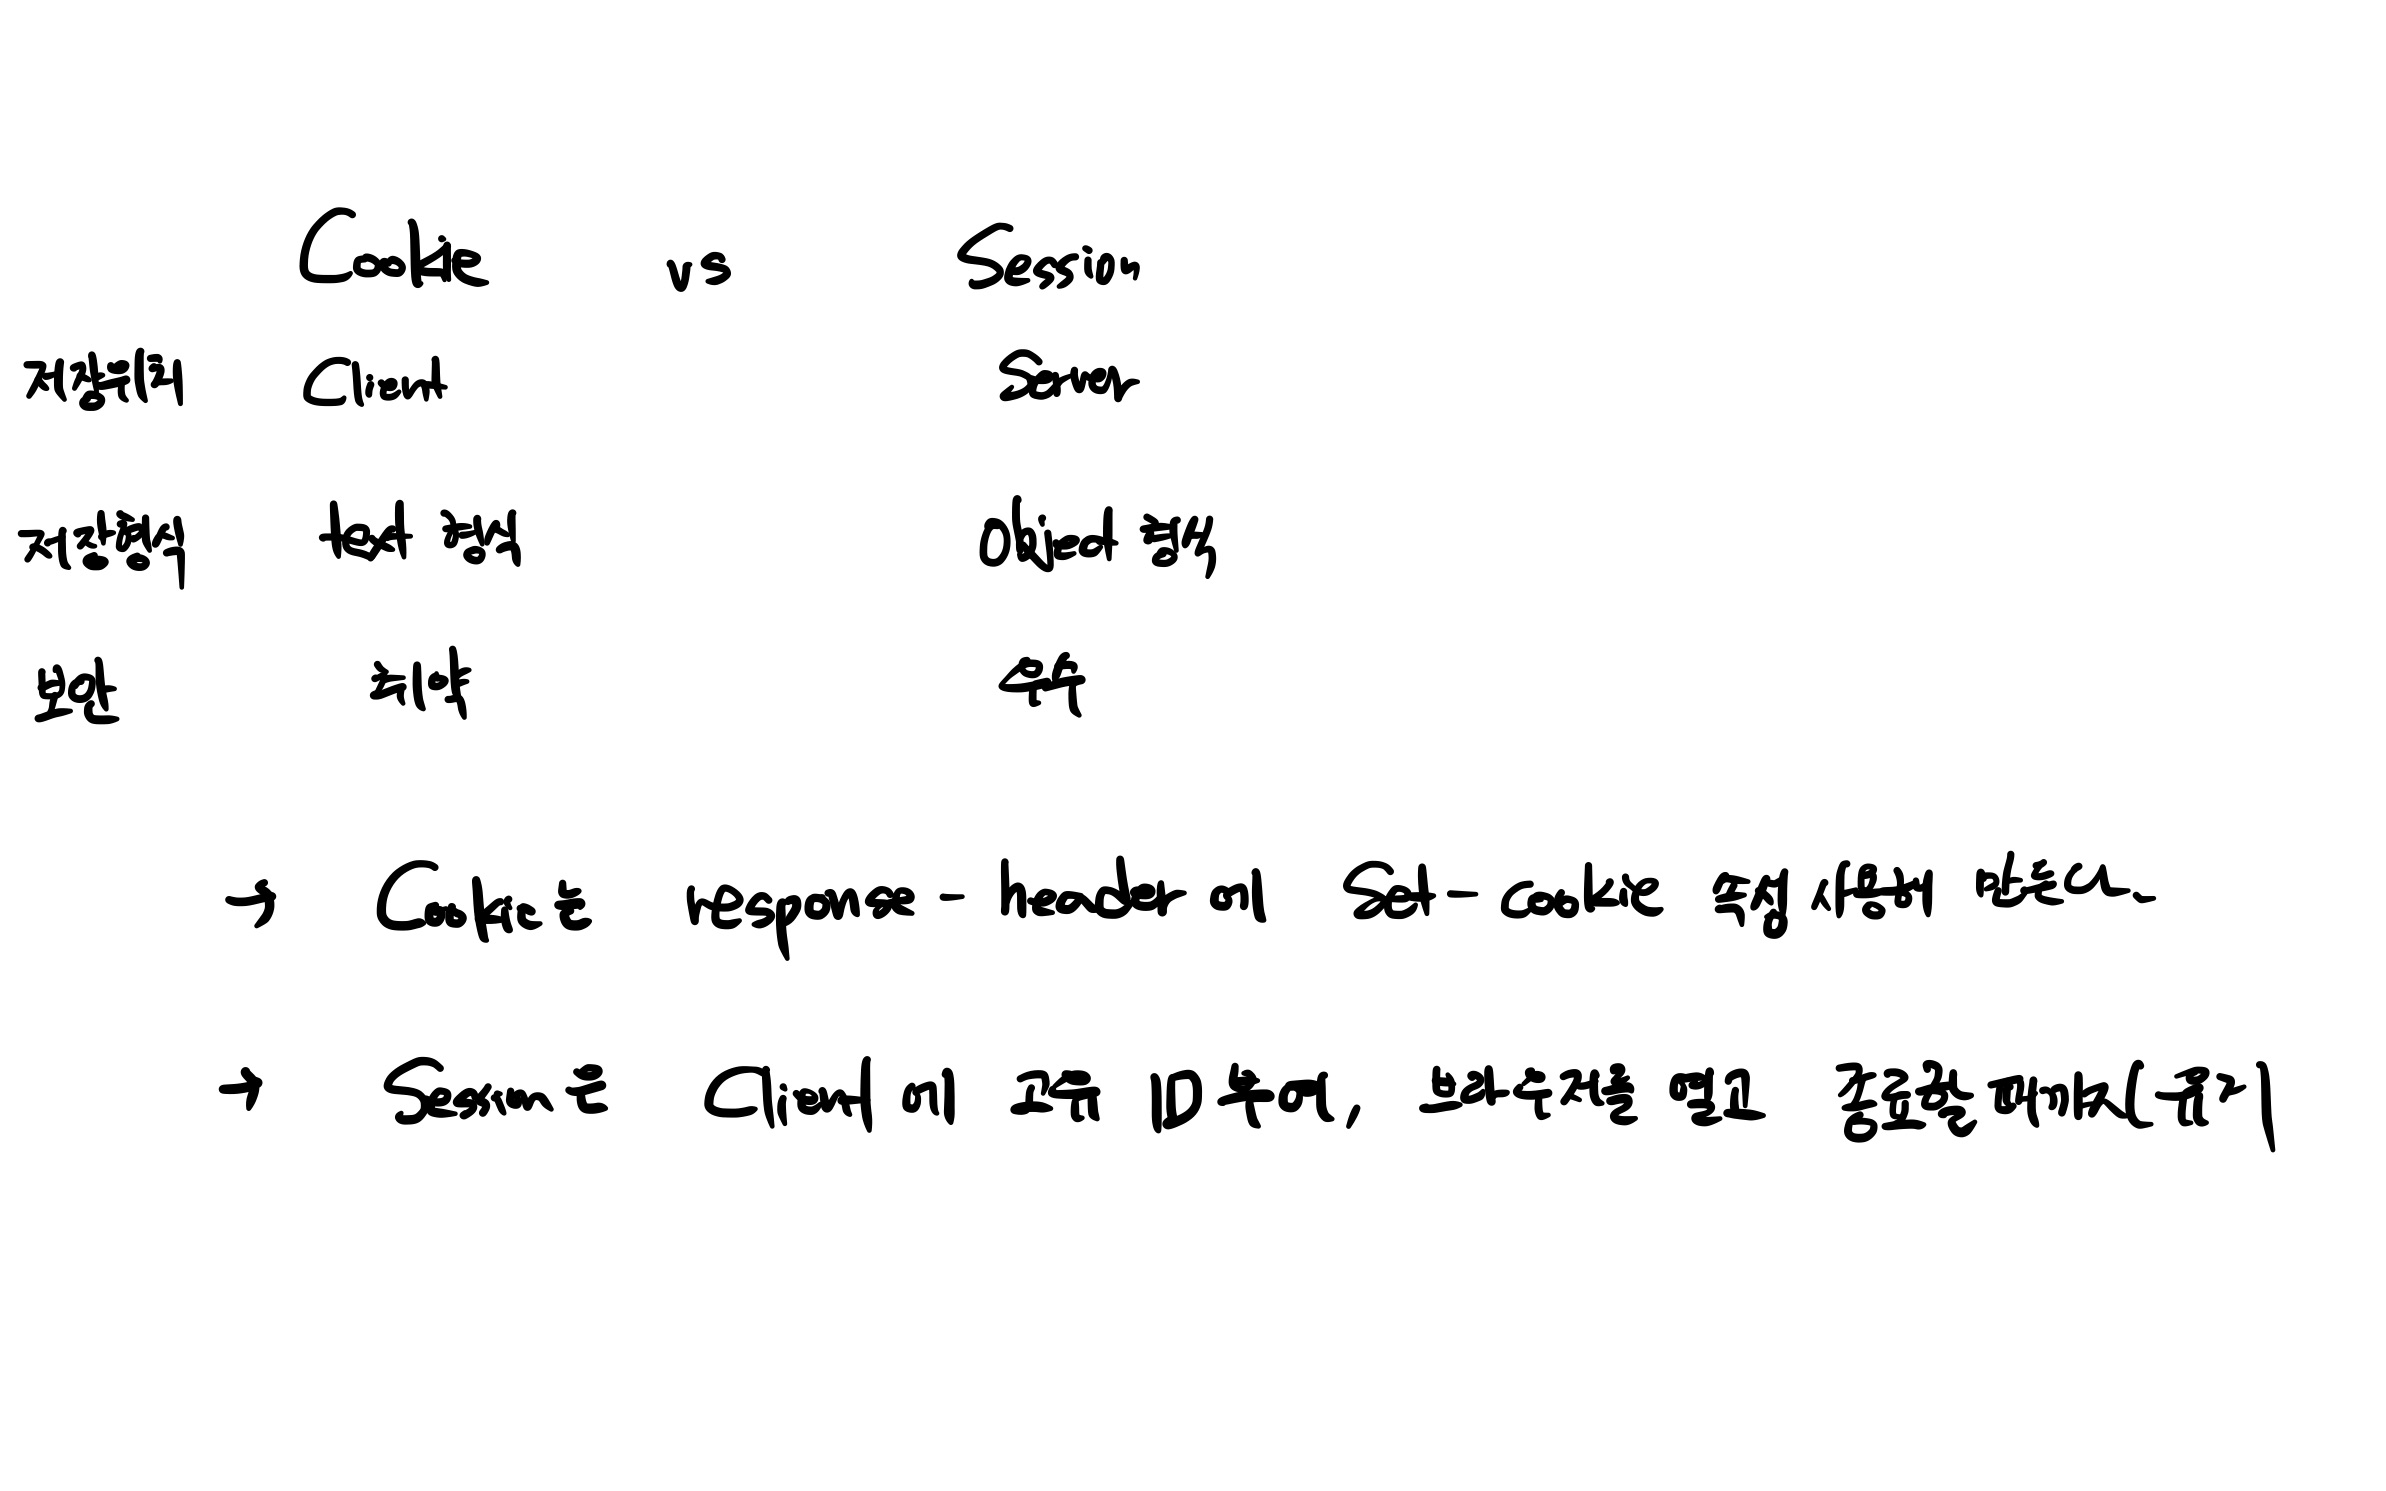 Cookie vs Session
저장위치 Client Server
저장형식 text 형식 Object 형식
보안 취약 우수
→ Cookie는 response - header에 Set - cookie 속성 사용해 만든다.
→ Session은 Client에 고유 ID 부여,